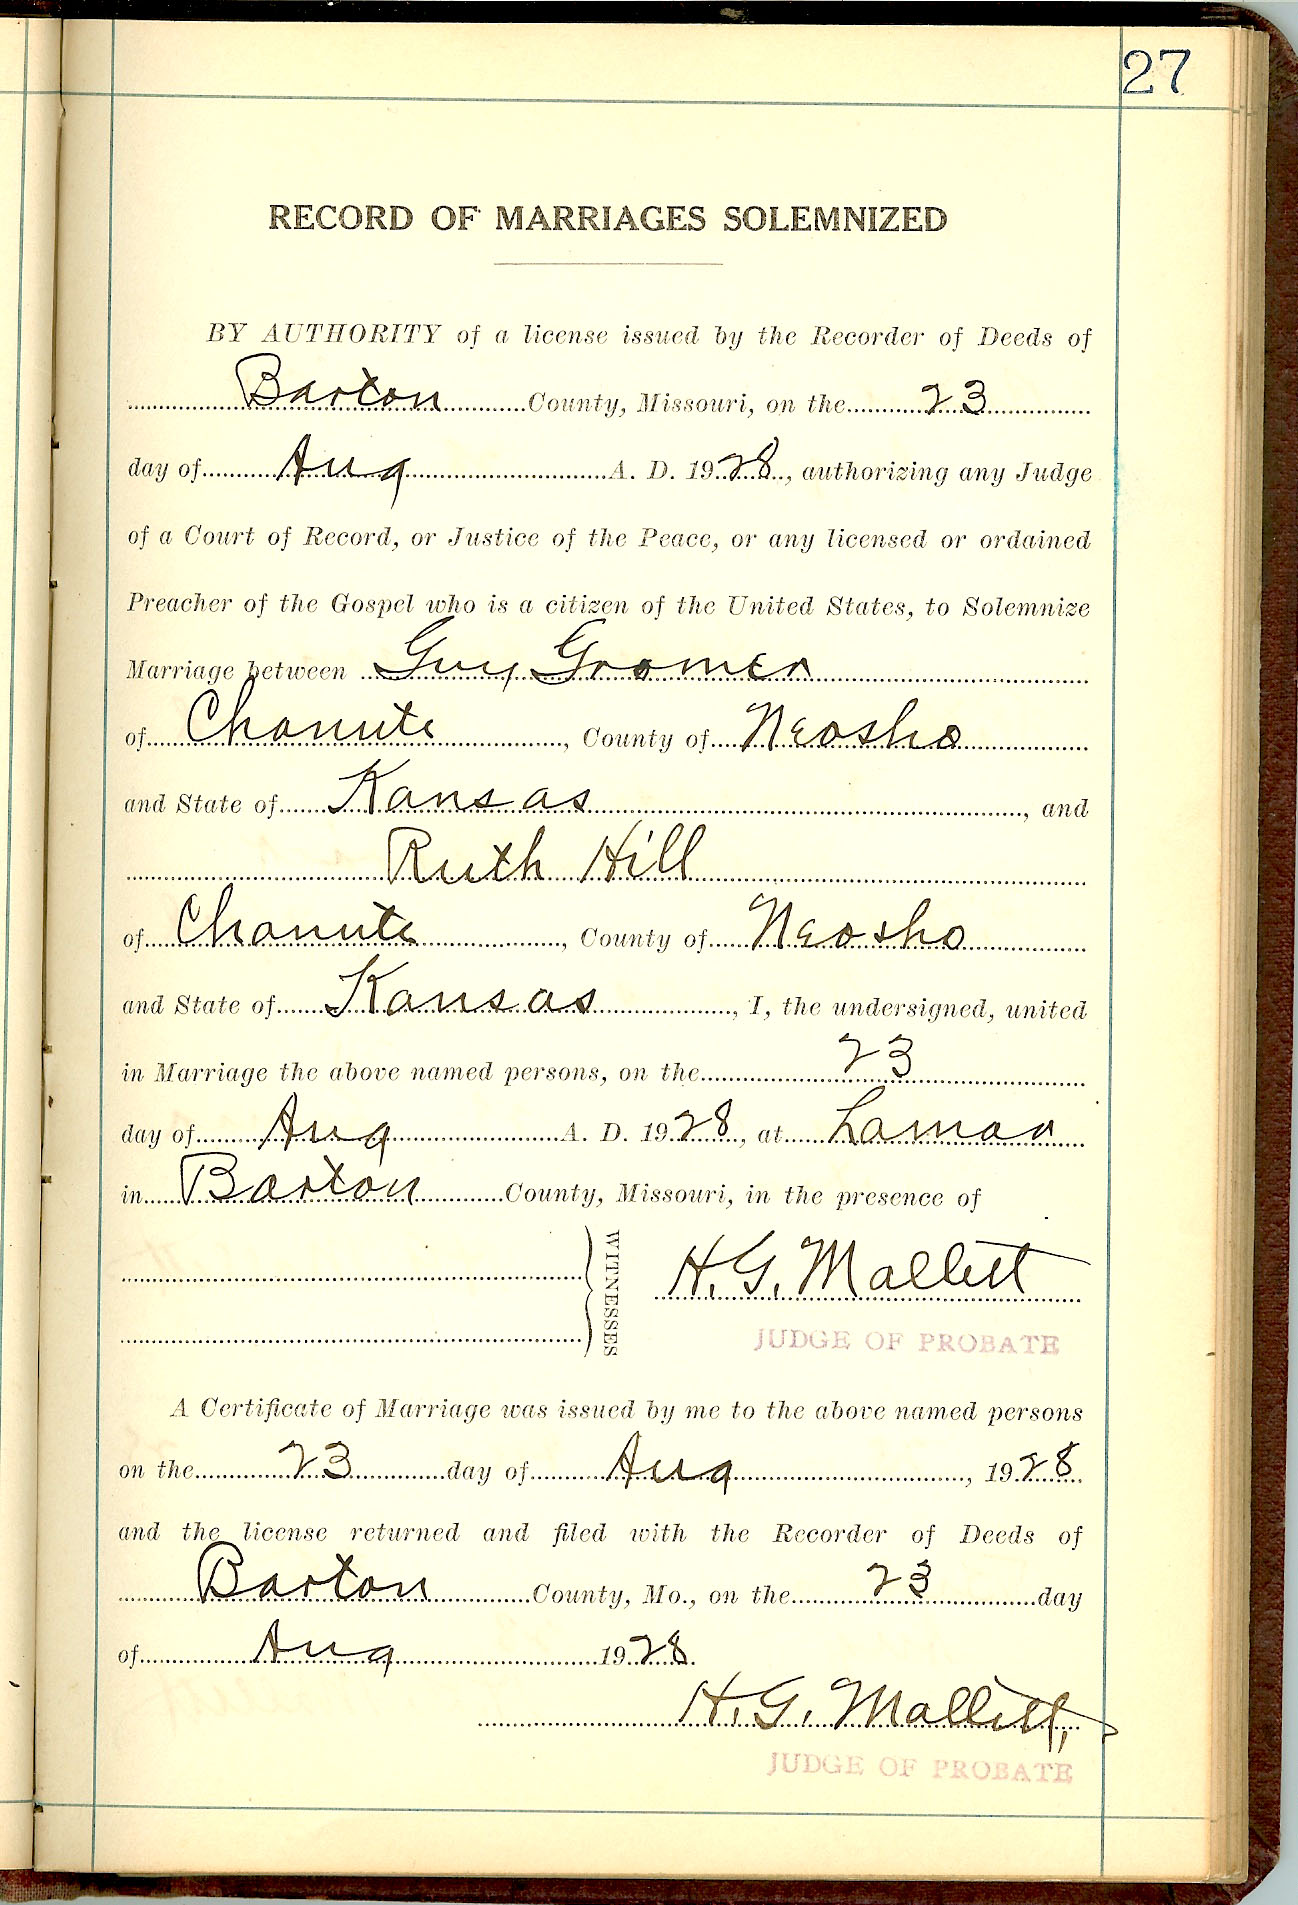 27
RECORD OF MARRIAGES SOLEMNIZED
BY AUTHORITY of a license issued by the Recorder of Deeds of
Barton County, Missouri, on the 23
day of Aug A. D. 1928, authorizing any Judge
of a Court of Record, or Justice of the Peace, or any licensed or ordained
Preacher of the Gospel who is a citizen of the United States, to Solemnize
Marriage between Guy Gromer
of Chanute, County of Neosho
and State of Kansas, and
Ruth Hill
of Chanute, County of Neosho
and State of Kansas, I, the undersigned, united
in Marriage the above named persons, on the 23
day of Aug A. D. 1928, at Lamar
in Barton County, Missouri, in the presence of
WITNESSES
H. G. Mallett
JUDGE OF PROBATE
A Certificate of Marriage was issued by me to the above named persons
on the 23 day of Aug, 1928
and the license returned and filed with the Recorder of Deeds of
Barton County, Mo., on the 23 day
of Aug 1928.
H. G. Mallett,
JUDGE OF PROBATE